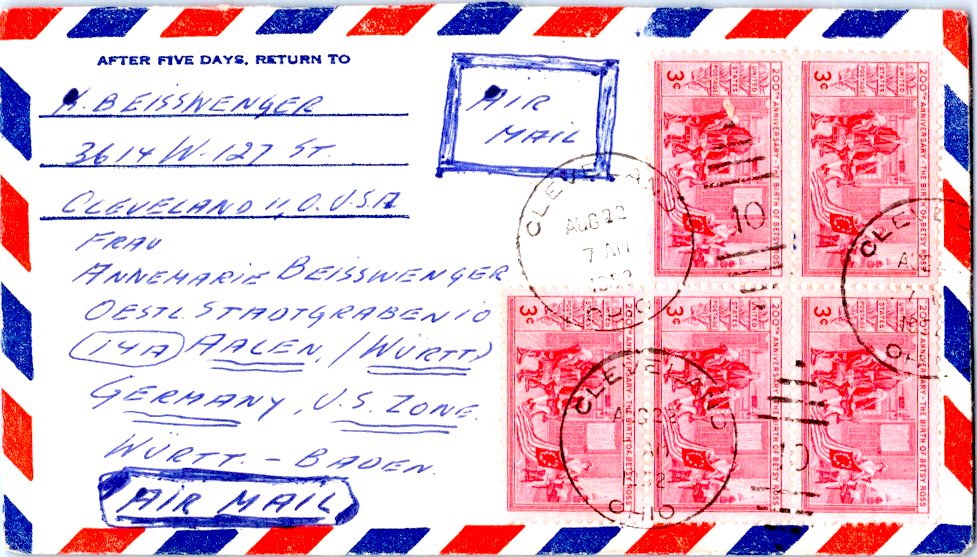 AFTER FIVE DAYS, RETURN TO
K. BEISSWENGER
3614 W. 127 ST.
CLEVELAND 11, O. U.S.A
AIR
MAIL
FRAU
ANNEMARIE BEISSWENGER
OESTL. STADTGRABEN 10
(14A) AALEN, (WÜRTT)
GERMANY, U.S. ZONE.
WÜRTT. - BADEN.
AIR MAIL
3c
UNITED STATES POSTAGE
200TH ANNIVERSARY · THE BIRTH OF BETSY ROSS
3c
UNITED STATES POSTAGE
200TH ANNIVERSARY · THE BIRTH OF BETSY ROSS
3c
UNITED STATES POSTAGE
200TH ANNIVERSARY · THE BIRTH OF BETSY ROSS
3c
UNITED STATES POSTAGE
200TH ANNIVERSARY · THE BIRTH OF BETSY ROSS
3c
UNITED STATES POSTAGE
200TH ANNIVERSARY · THE BIRTH OF BETSY ROSS
CLEVELAND
AUG 22
7 AM
1952
10
CLEVELAND
AUG
1952
OHIO
10